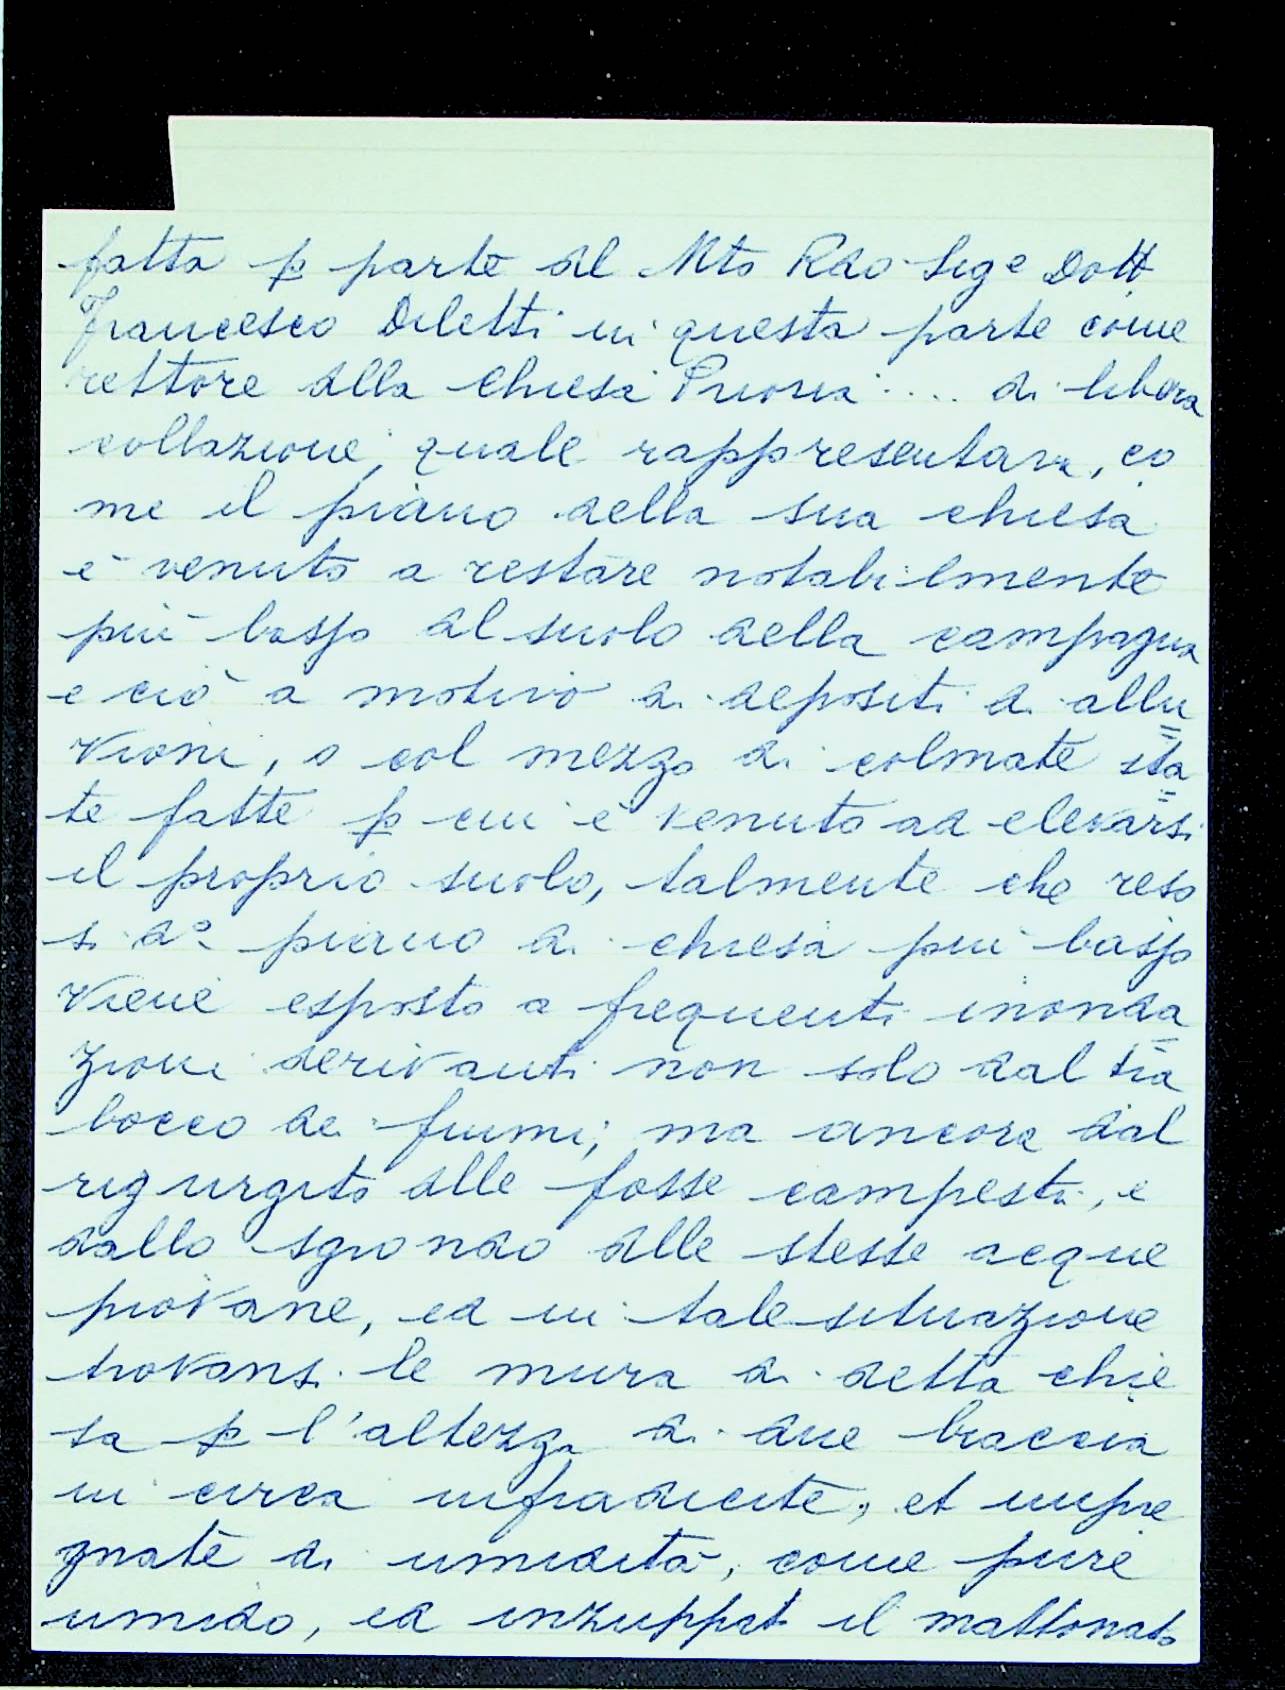 fatta p parte del Mto Rdo Sige Dott
Francesco Diletti in questa parte come
rettore della Chiesa Prioria .... di libera
collazione, quale rappresentava, co
me il piano della sua chiesa
è venuto a restare notabilmente
più basso del suolo della campagna
e ciò a motivo di depositi di allu
vioni, o col mezzo di colmate sta
te fatte p cui è venuto ad elevarsi
il proprio suolo, talmente che reso
si do piano di chiesa più basso
viene esposto a frequenti inonda
zioni derivanti non solo dal tra
bocco dei fiumi; ma ancora dal
rigurgito delle fosse campestri, e
dallo sgrondo delle stesse acque
piovane, ed in tale situazione
trovansi le mura di detta chie
sa p l'altezza di due braccia
in circa infradicite, et impre
gnate di umidità, come pure
umido, ed inzuppato il mattonato